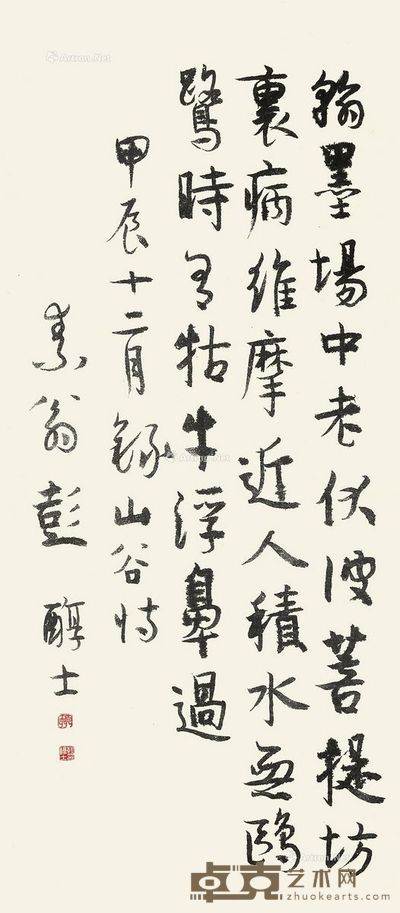 翰墨場中老伏波菩提坊
裏病維摩近人積水無鷗
鷺時有牯牛浮鼻過
甲辰十二月錄山谷詩
素翁彭醇士
Artron.Net
卓克艺术网
zhuokearts.com